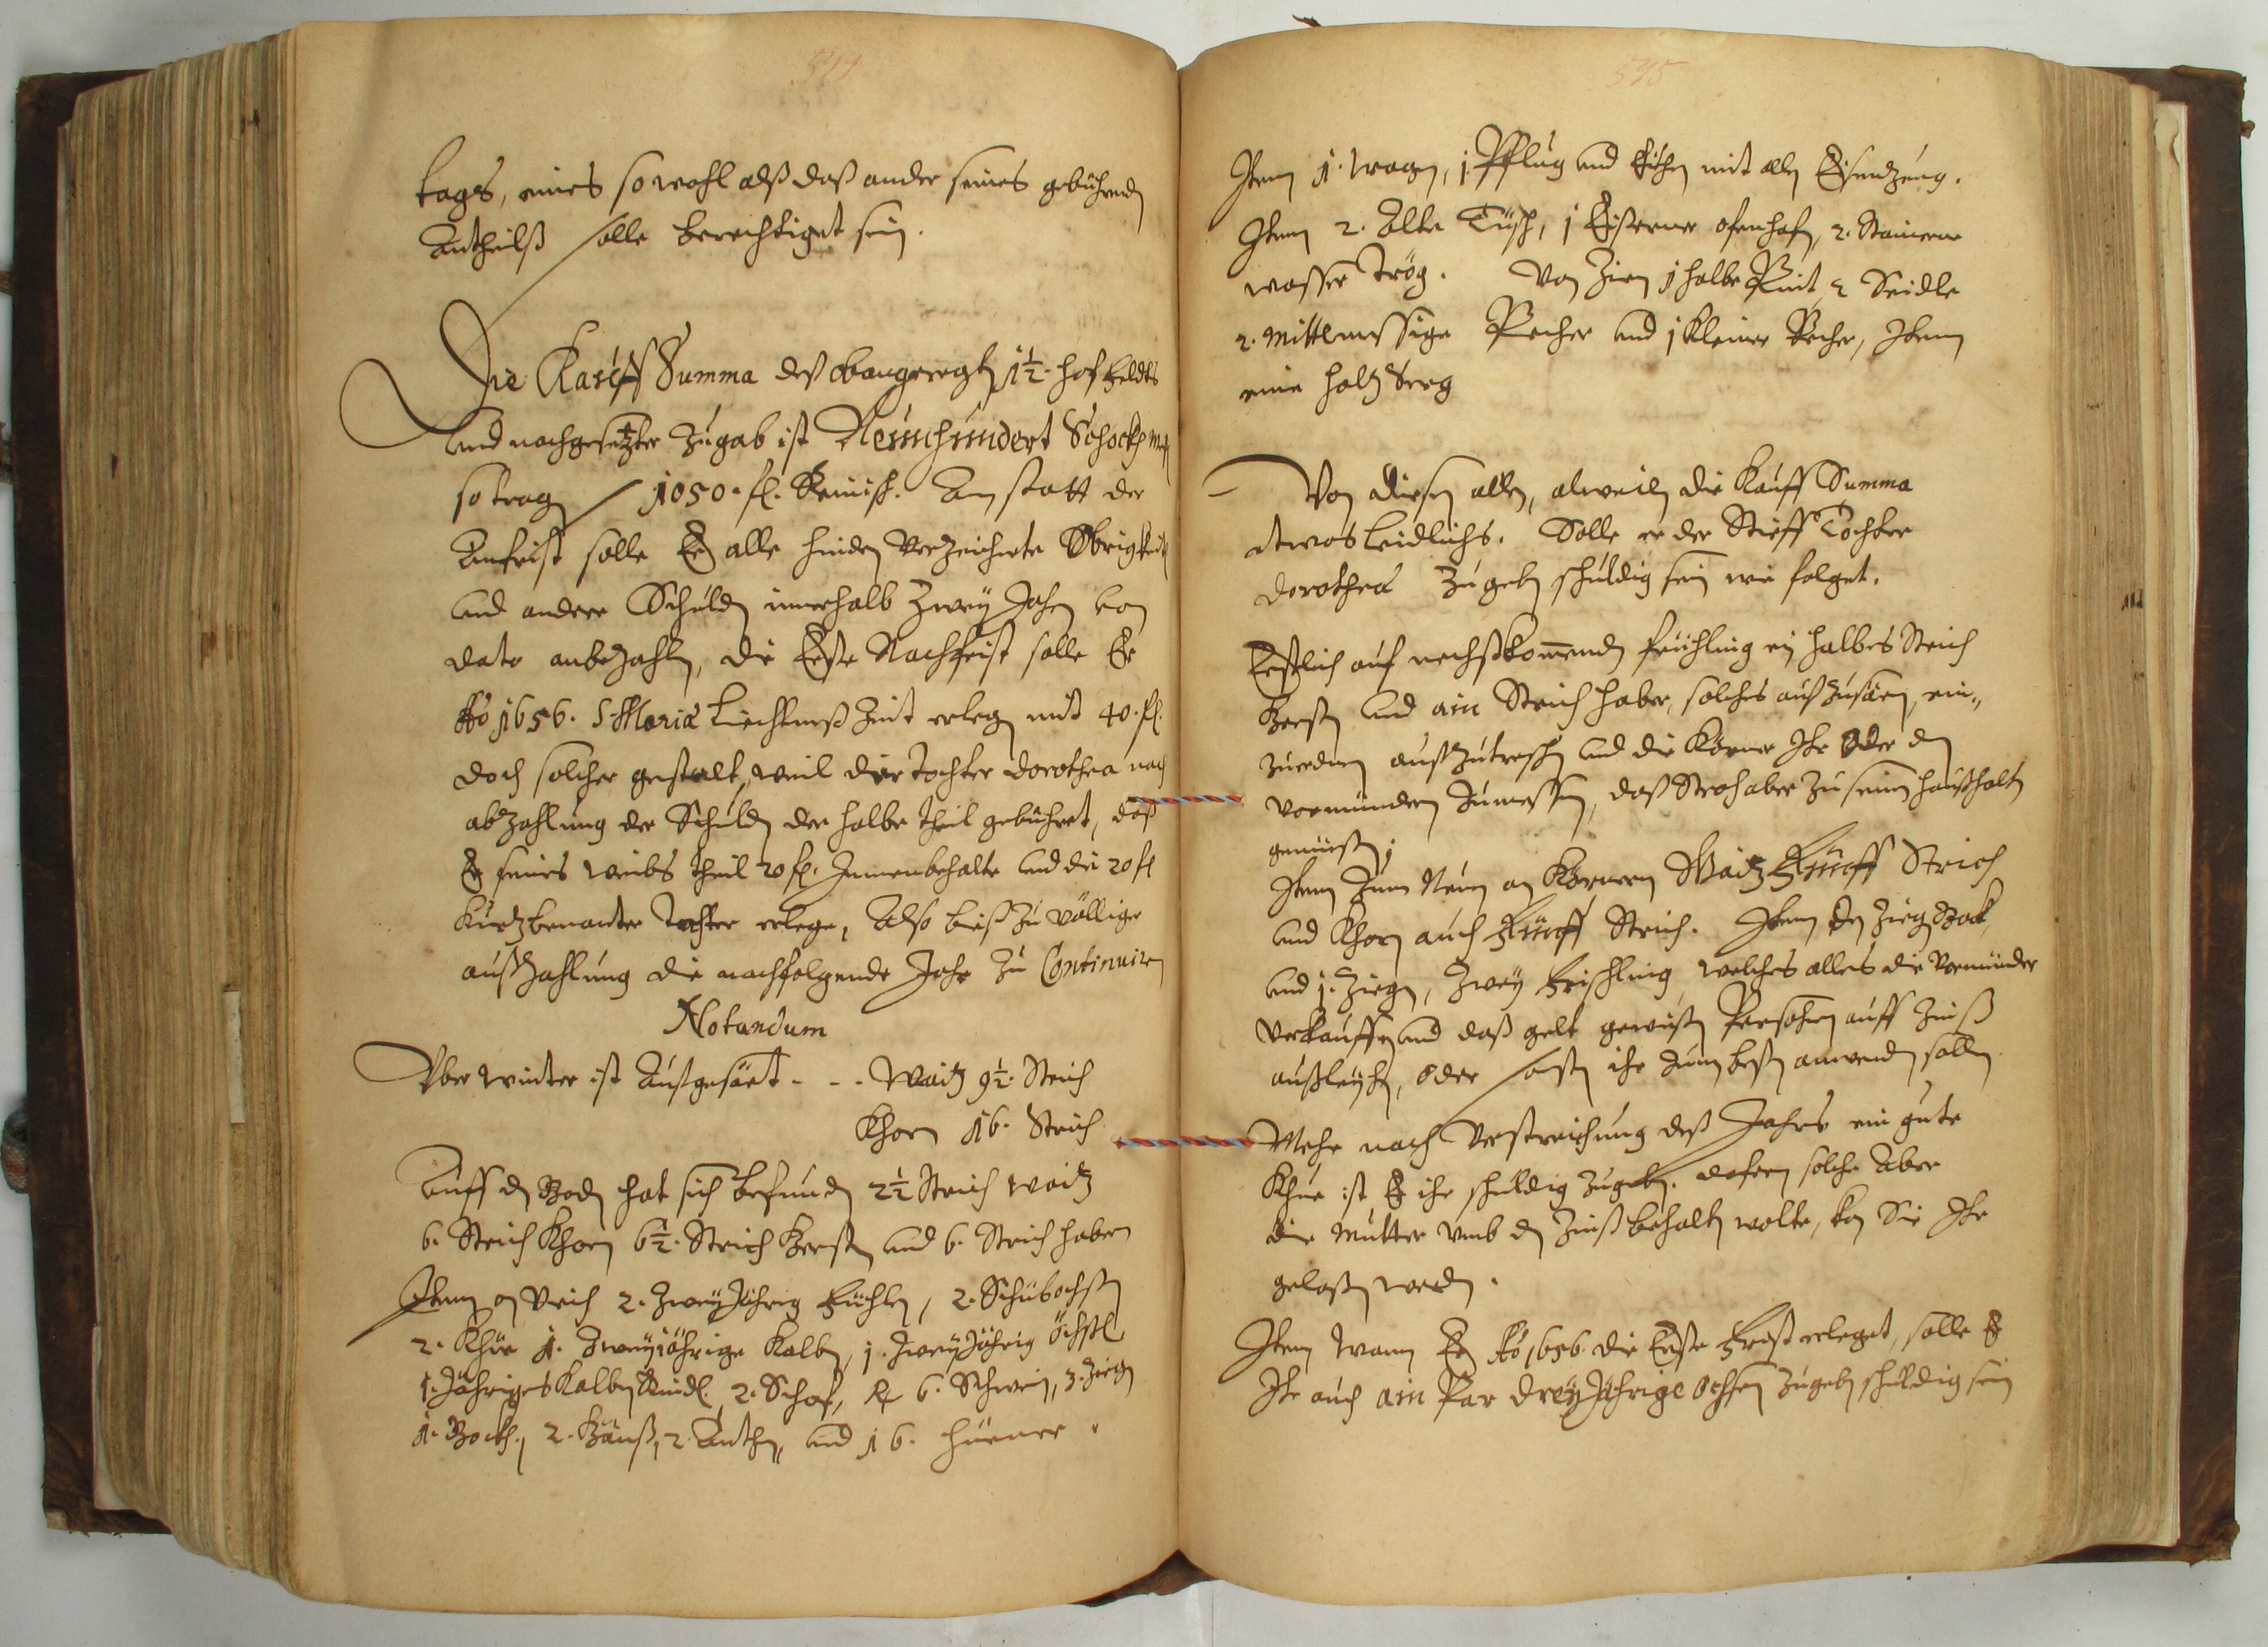 544
tags, eines so wohl alß daß ander seines gebührend
Antheilß solle berechtiget sein.
Die Kauff Summa deß obangeregten 1½ hof feldts
und nachgesetzter Zugab ist Neunhundert Schockh
so trag 1050. fl. Reinisch. An statt der
Anfrist solle Er alle hinden Verzeichnete Obrigkeit
und andere Schulden innerhalb Zwey Jahren von
dato anbezahlen, die Erste Nachfrist solle Er
Ao 1656. S. Mariæ Liechtmeß Zeit erlegen mit 40. fl.
doch solcher gestalt, weil der tochter Dorothea nach
abzahlung der Schulden der halbe theil gebühret, daß
Er seines weibs theil 20 fl. Innenbehalte und die 20 fl
kurtzbenanter tochter erlege, Also biß zu völliger
außzahlung die nachfolgende Jahr zu Continuiren
Notandum
Über winter ist Außgesäet - - - Waitz 9½. Strich
Khorn 16. Strich
Auff den Boden hat sich befunden 2½ Strich Waitz
6. Strich Khorn 6½. Strich Gersten und 6. Strich habern
Item an Viech 2. Zweyjährig 2.
2. Khüe 1. Zweyjährige Kalben, 1. Zweyjährig Öchsl
1. Jähriges Kalben Rindl, 2. Schof, 6. Schwein, 3. Ziegen
1. Bockh, 2. Gänß, 2. Anthen, und 16. hüener.
545
Item 1. Wagen, 1 Pflug und mit allen Eisenzeug.
Item 2. Alte Tüsch, 1 Eiserner ofenhafen, 2. Stainerne
wasser Trög. Von Zien 1 halbe Pint, 2 Seidle
2. Mittlmessige Pecher und 1 kleiner Pecher, Item
eine holtz Seeg
Von diesen allen, alweilen die Kauff Summa
etwas leidliches. Solle er der Stieff Tochter
Dorothea zu geben schuldig sein wie folget.
Erstlich auf nechstkommenden frühling ein halbes Strich
Gersten und ain Strich haber, solches außzusäen, ein-
zuerdnen außzutreschen und die Körner Ihr Oder den
vormündern zumessen, daß Stroh aber zu seiner haußhalten
genüessen
Item Zum Neuen an Körnern Waitz Fünff Strich
und Khorn auch Fünff Strich. Item den Ziegbock
und 1. Ziegen, Zwey Frischling, welches alles die Vormünder
verkauffen und daß gelt gewisen Persohnen auff Zinß
außleyhen, oder sonsten ihr zum besten anwenden sollen
Mehr nach Verstreichung deß Jahrs ein gute
Khue ist Er ihr schuldig zugeben. dafern solche Aber
die Mutter umb den Zinß behalten wolte, kan Sie Ihr
gelassen werden.
Item wann Er Ao 1656 die Erste Frist erleget, solle Er
Ihr auch ain Par dreyJährige Ochsen zugeben schuldig sein